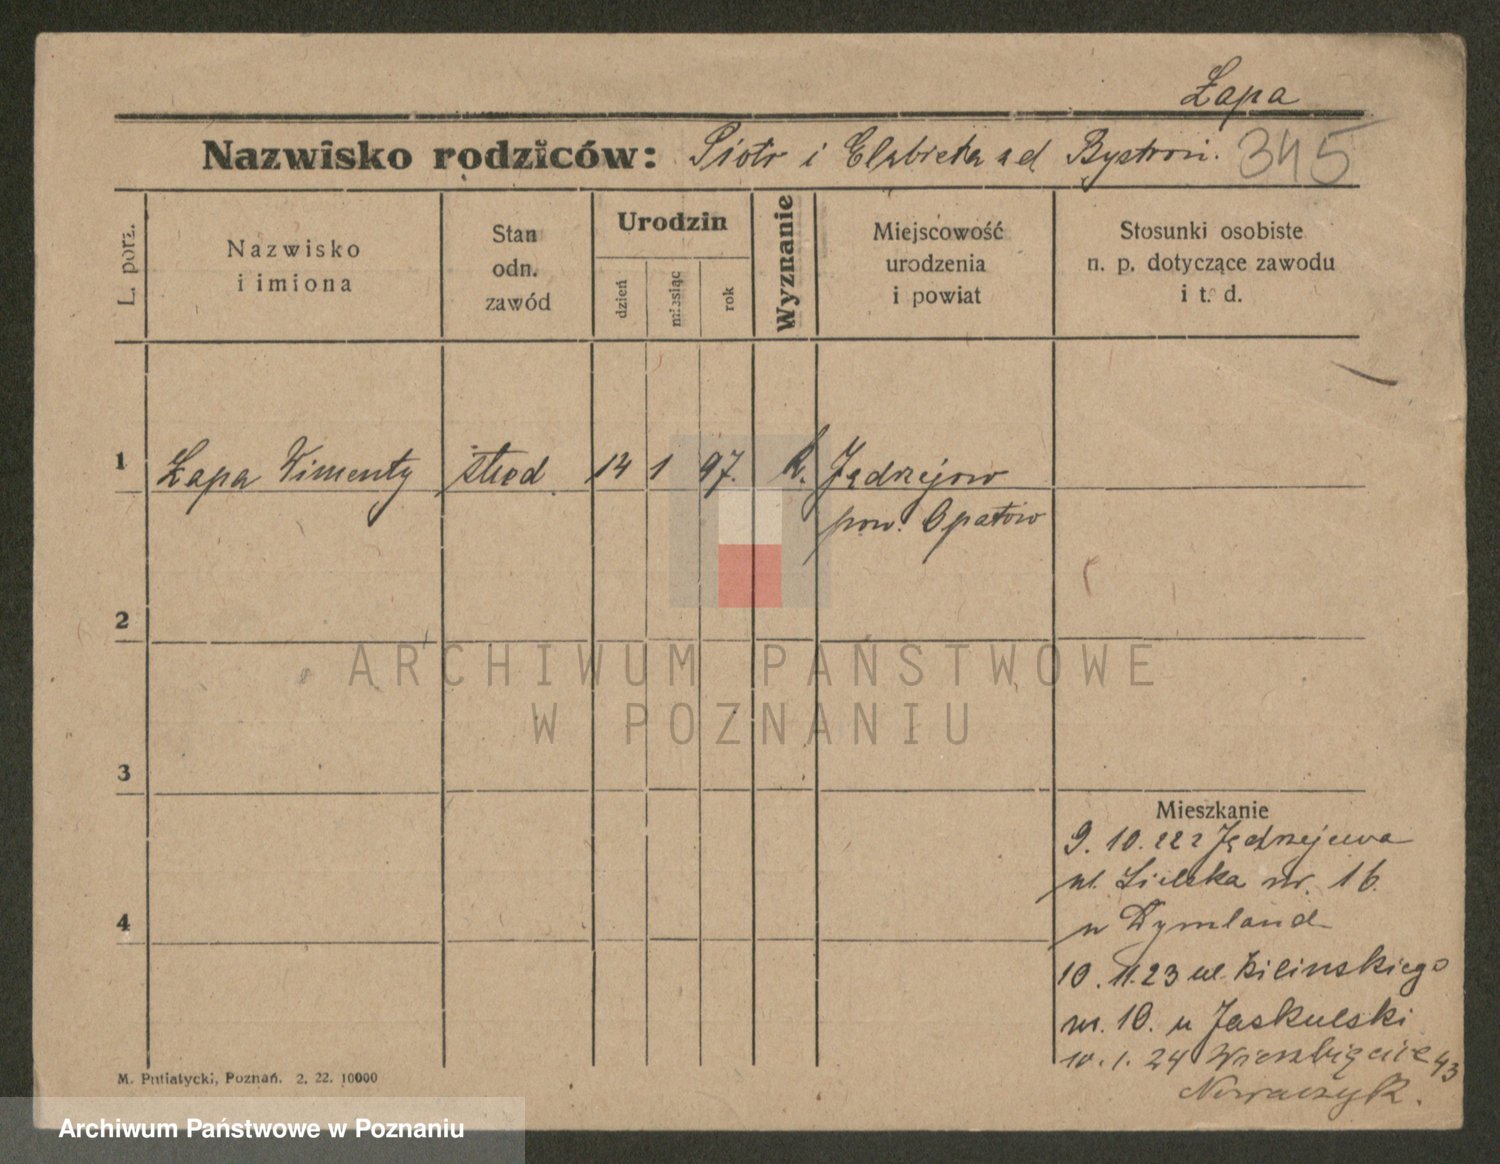 Łapa
Nazwisko rodziców: Piotr i Elżbieta ad Bystroń. 345
L. porz.
Nazwisko
i imiona
Stan
odn.
zawód
Urodzin
dzień
miesiąc
rok
Wyznanie
Miejscowość
urodzenia
i powiat
Stosunki osobiste
n. p. dotyczące zawodu
i t. d.
1 Łapa Wincenty stud. 14 1 97. k. Jędrzejow
pow. Opatów
2
ARCHIWUM PAŃSTWOWE
W POZNANIU
3
Mieszkanie
9. 10. 22 z Jędrzejewa
ul. nr. 16.
4
u Dymland
10. 11. 23 ul. Kilinskiego
nr. 10. u Jaskulski
10. 1. 24 Wierzbięcice 43
Nowaczyk.
M. Putiatycki, Poznań. 2. 22. 10000
Archiwum Państwowe w Poznaniu